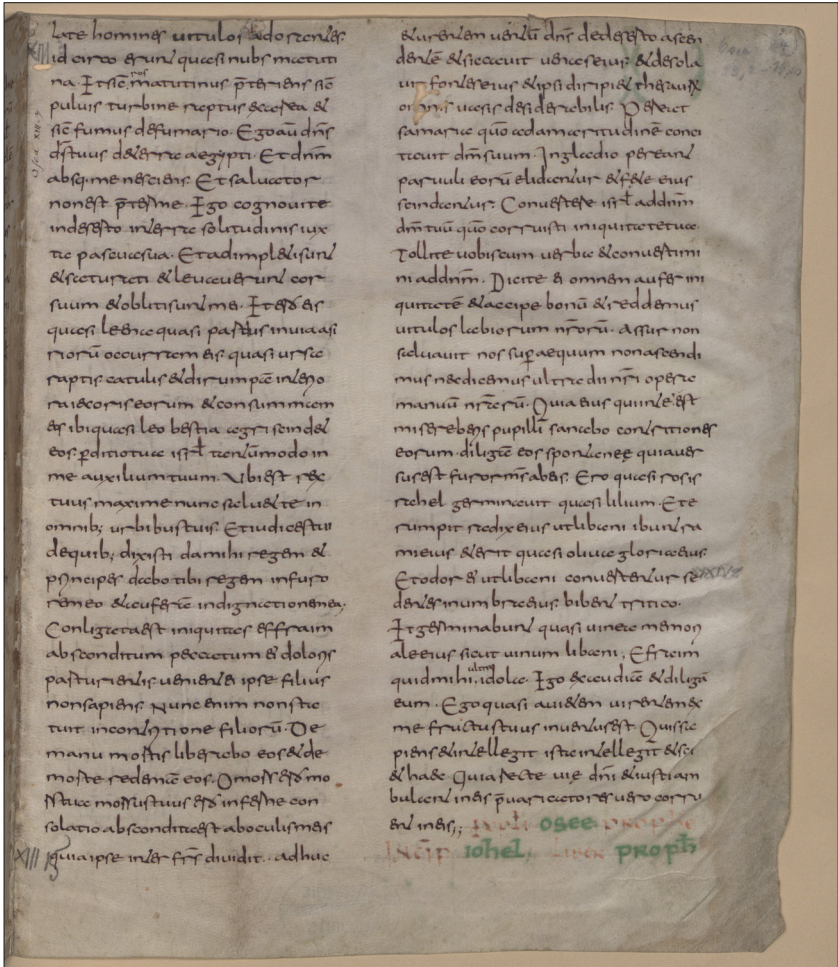 late homines uitulos adorantes
id circo erunt quasi nubs matuti
na. Et sic ros matutinus p̄teriens sic
puluis turbine raptus ex area et
sic fumus de fumario. Ego aū dn̄s
d̄s tuus de terra aegypti. Et dn̄m
absq; me nescies. Et saluator
non est p̄ter me. Ego cognoui te
in deserto in terra solitudinis iux
ta pascua sua. Et adimpleti sunt
et saturati et leuauerunt cor
suum et obliti sunt me. Et ero eis
quasi leena quasi pardus in uia asi
riorū occurram eis quasi ursa
raptis catulis et dirumpā interio
ra iecoris eorum et consummam
es ibi quasi leo bestia agri scindet
eos. p̱ditio tua isrł tantūmodo in
me auxilium tuum. Ubi est rex
tuus maxime nunc saluet te in
omnib; urbibus tuis. Et iudices tui
de quib; dixisti da mihi regem et
principes dabo tibi regem in furo
re meo et auferā in dignatione mea.
Conligata est iniquitas effraim
absconditum peccatum ei dolores
parturientis uenient ei ipse filius
non sapiens. Nunc enim non sta
bit in contritione filiorū. De
manu mortis liberabo eos et de
morte redimā eos. O mors ero mo
rs tua morsus tuus ero inferne con
solatio abscondita est ab oculis meis
XIII quia ipse inter frs̄ diuidit. adhuc
et urentem uentū dn̄s de deserto ascen
dentē et siccauit uenas eius et desola
uit fontes eius et ipse diripiet thesaurū
omnis uasis desiderabilis. Pereat
samaria quō ad amaritudinē conci
tauit dm̄ suum. In gladio pereant
paruuli eorū elidantur et fete eius
scindantur. Conuertere isrł ad dn̄m
dm̄ tuū quō corruisti in iniquitate tua.
Tollite uobiscum uerba et conuertimi
ni ad dn̄m. Dicite ei omnem aufer ini
quitatē et accipe bonū et reddemus
uitulos labiorum nr̄orū. Assur non
saluauit nos super aequum non ascendi
mus nec dicemus ultra dii nr̄i opera
manuū nr̄arū. Quia eius qui in te est
misereberis pupilli sanabo contritiones
eorum. diligā eos spontanee quia uer
sus est furor m̄s ab eis. Ero quasi ros is
rahel germinauit quasi lilium. Et e
rumpit radix eius ut libani ibunt ra
mi eius et erit quasi oliua gloria eius
Et odor ei ut libani conuertentur se
dentes in umbra eius. bibent tritico.
Et germinabunt quasi uinea memori
ale eius sicut uinum libani. Efraim
quid mihi ultra idola. Ego exaudiā et diligā
eum. Ego quasi auietem uirentem ex
me fructus tuus inuentus est. Quis sa
piens et intellegit ista intellegit et sci
et haec Quia recte uie dn̄i et iusti am
bulant in eis p̄uaricatores uero corru
ent in eis;; Expł osee prophe
Incip̄ iohel, liber proph̄